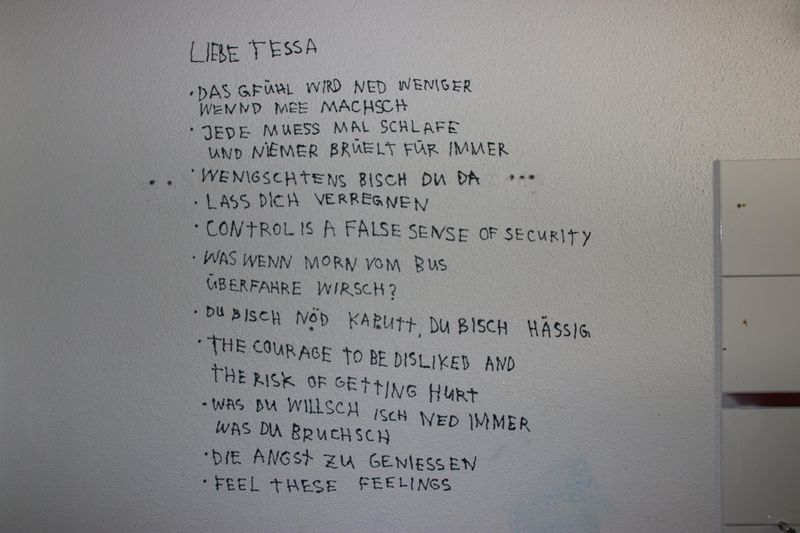 LIEBE TESSA
• DAS GFÜHL WIRD NED WENIGER
WENND MEE MACHSCH
• JEDE MUESS MAL SCHLAFE
UND NIEMER BRÜELT FÜR IMMER
• • • WENIGSCHTENS BISCH DU DA •••
• LASS DICH VERREGNEN
• CONTROL IS A FALSE SENSE OF SECURITY
• WAS WENN MORN VOM BUS
ÜBERFAHRE WIRSCH?
• DU BISCH NÖD KAPUTT, DU BISCH HÄSSIG
• THE COURAGE TO BE DISLIKED AND
THE RISK OF GETTING HURT
• WAS DU WILLSCH ISCH NED IMMER
WAS DU BRUCHSCH
• DIE ANGST ZU GENIESSEN
• FEEL THESE FEELINGS